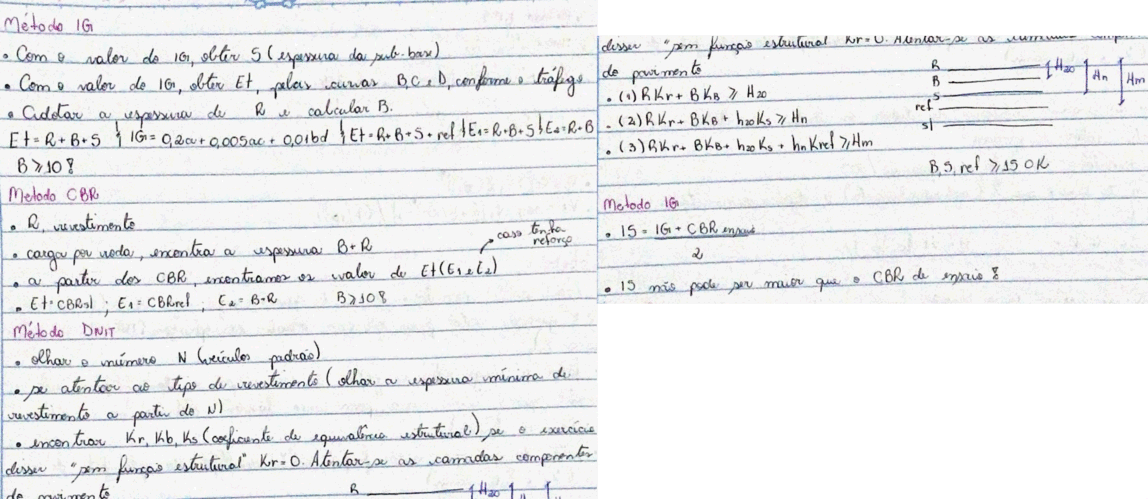 Método IG
• Com o valor do IG, obter S (espessura da sub-base)
• Com o valor do IG, obter Et, pelas curvas B, C e D, conforme o tráfego
• Adotar a espessura de R e calcular B.
Et = R + B + S } IG = 0,2a + 0,005ac + 0,01bd } Et = R + B + S + ref } E1 = R + B + S } E2 = R + B
B ≥ 10 !
Metodo CBR
• R, revestimento
• carga por roda, encontra a espessura B + R
caso tenha reforço
• a partir dos CBR, encontramos os valor de Et (E1 e E2)
• Et = CBRsl ; E1 = CBRref , E2 = B + R B ≥ 10 !
Método DNIT
• olhar o número N (veículos padrão)
• se atentar ao tipo de revestimento (olhar a espessura mínima de
revestimento a partir do N)
• encontrar Kr, Kb, Ks (coeficiente de equivalência estrutural) se o exercício
disser "sem função estrutural" Kr = 0. Atentar-se as camadas componentes
do pavimento
R H20
disser "sem função estrutural Kr = 0. Atentar-se as camadas
do pavimento
R
B
S
ref
sl
H20
Hn
Hm
• (1) RKr + BKB ≥ H20
• (2) RKr + BKB + h20Ks ≥ Hn
• (3) RKr + BKB + h20Ks + hnKref ≥ Hm
B, S, ref ≥ 15 OK
Metodo IG
• IS = IG + CBR ensaio
2
• IS não pode ser maior que o CBR de ensaio !